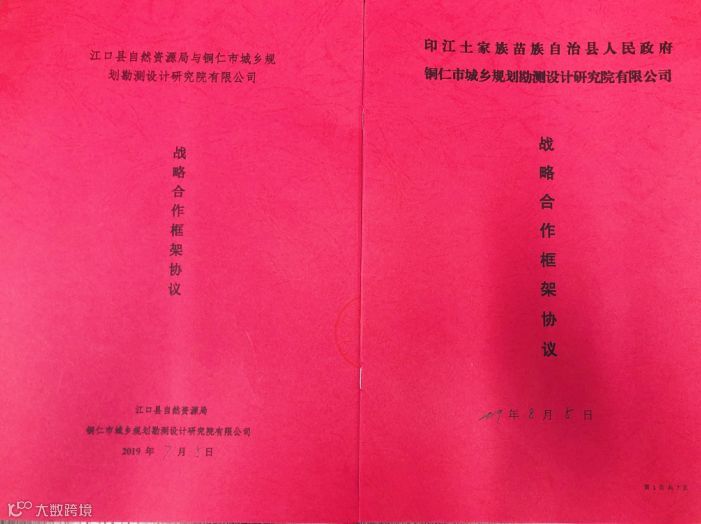 江口县自然资源局与铜仁市城乡规
划勘测设计研究院有限公司
战略合作框架协议
江口县自然资源局
铜仁市城乡规划勘测设计研究院有限公司
2019 年 7 月 日
印江土家族苗族自治县人民政府
铜仁市城乡规划勘测设计研究院有限公司
战略合作框架协议
19 年 8 月 5 日
第 1 页 共 7 页
大数跨境